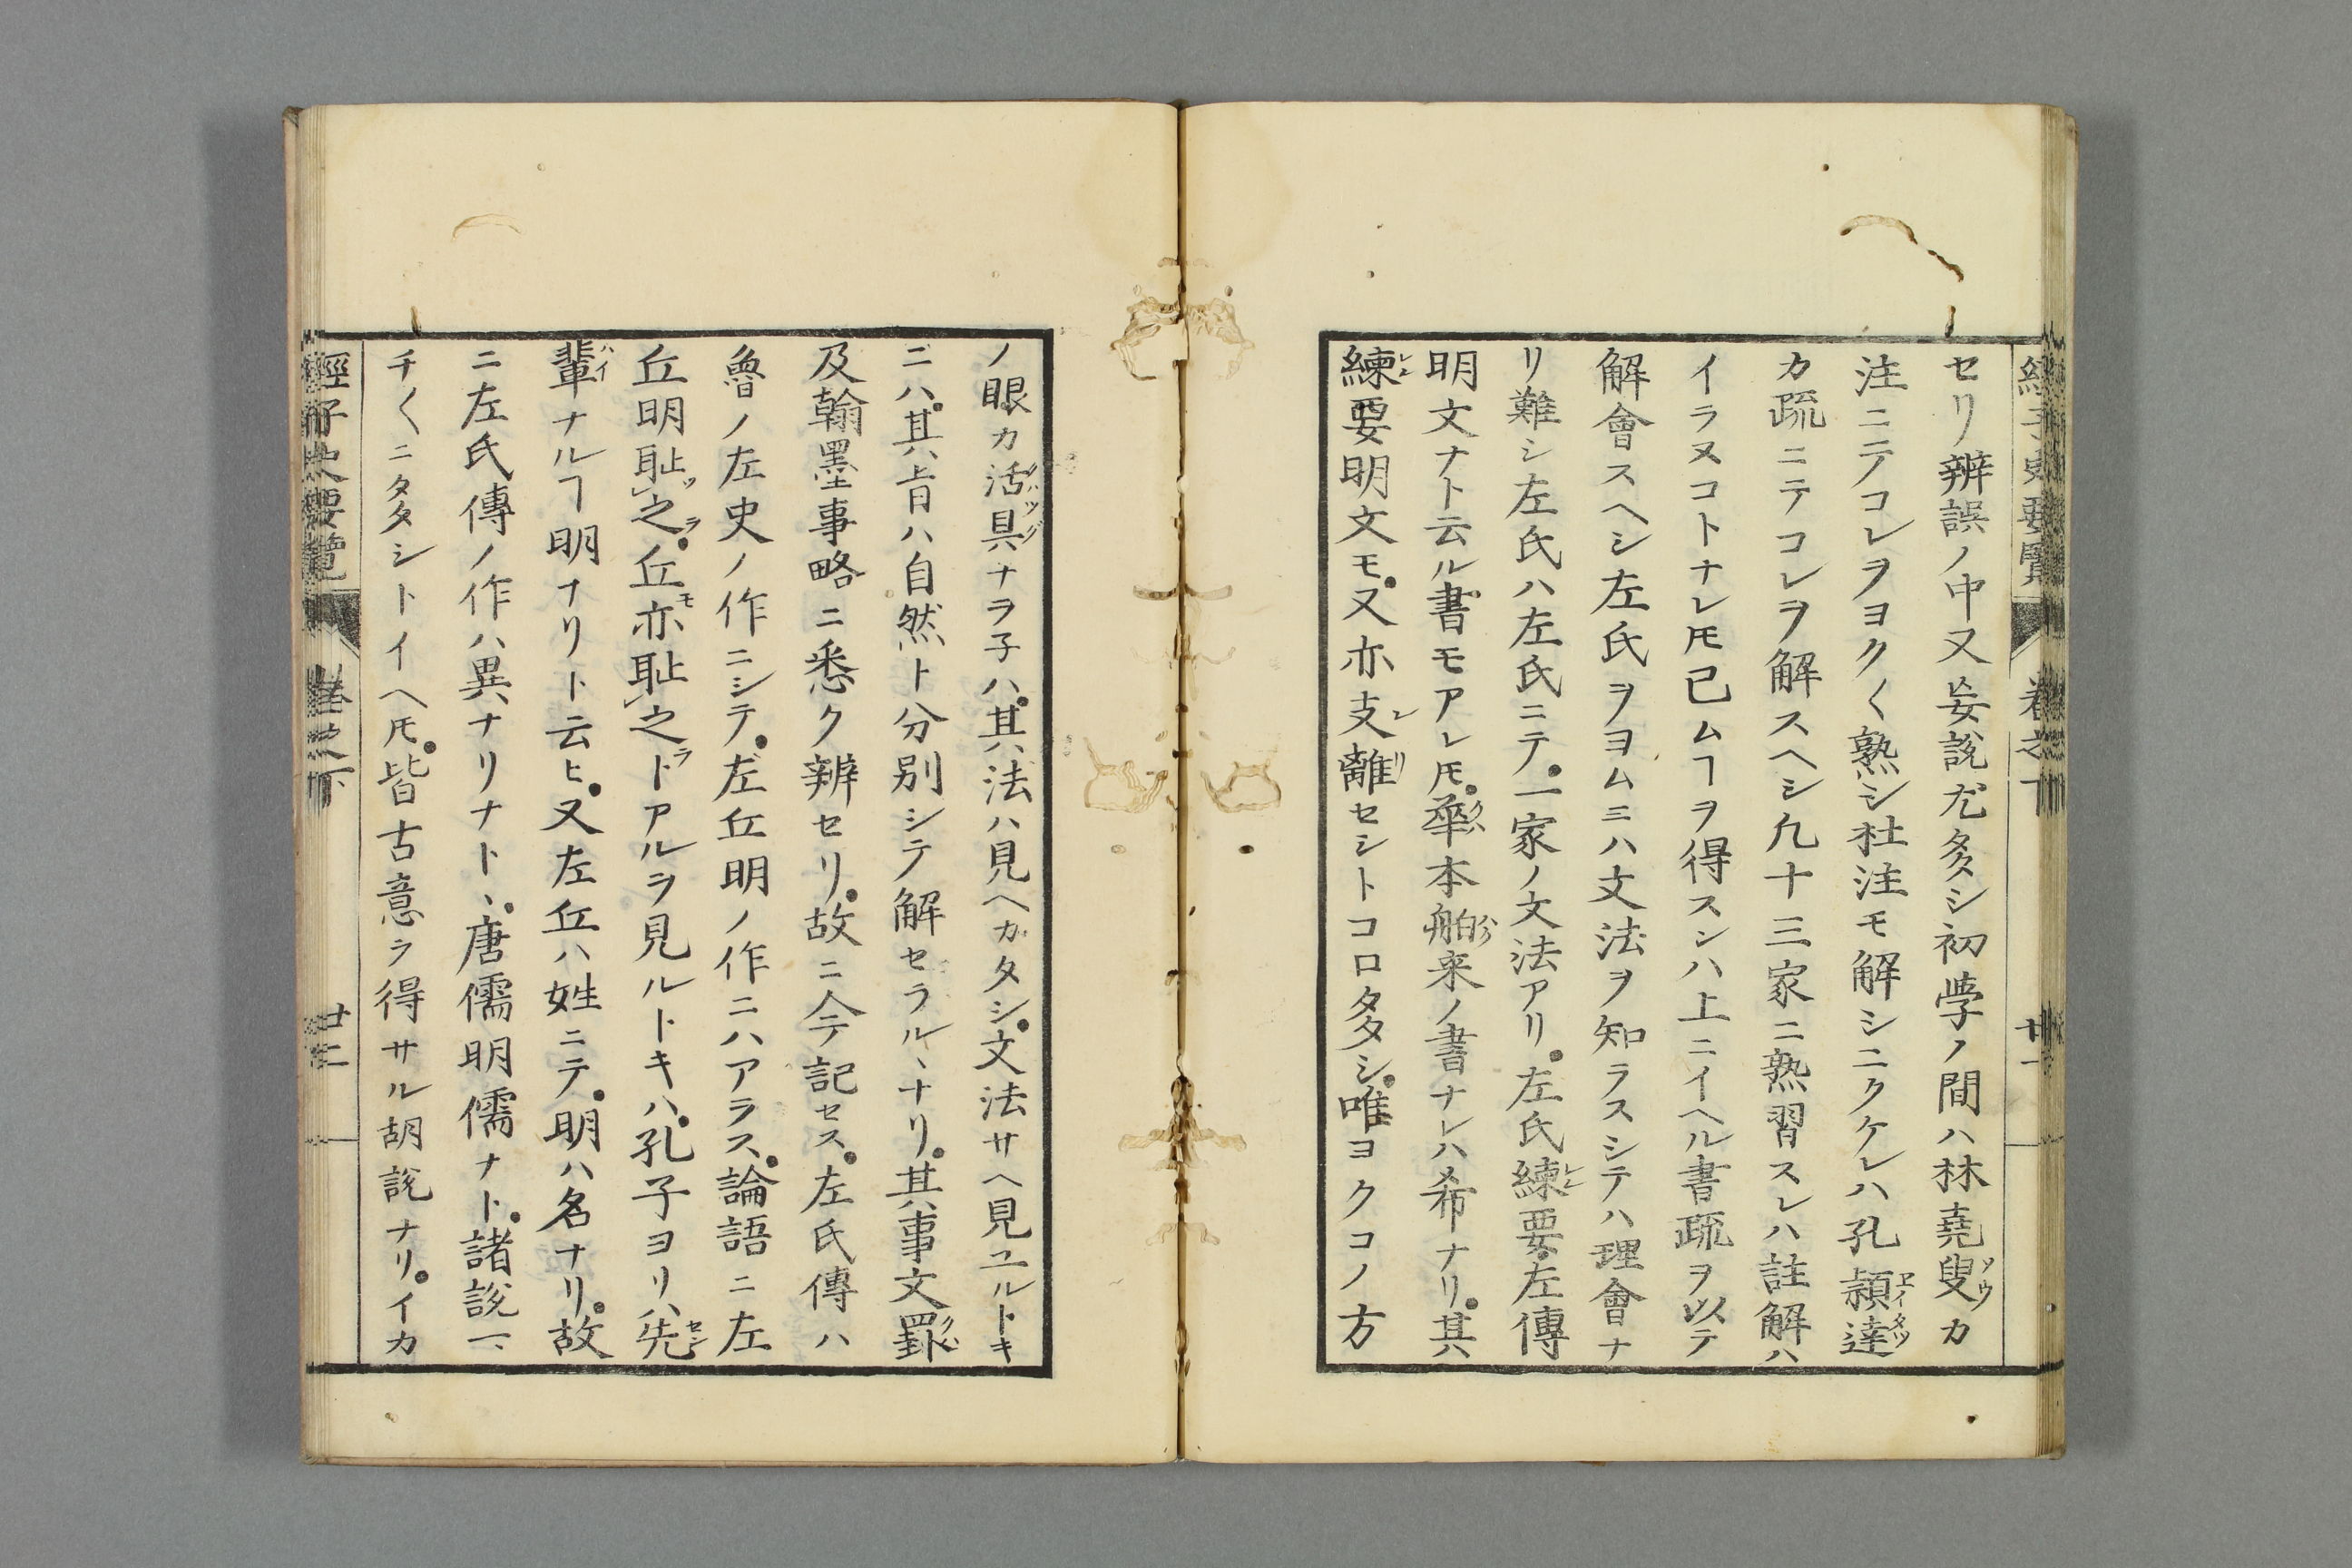 經子史要覽 卷之下 廿一
セリ辨誤ノ中又妄說尤多シ初学ノ間ハ林堯叟カ
注ニテコレヲヨク〱熟シ杜注モ解シニクケレハ孔穎達
カ疏ニテコレヲ解スヘシ凡十三家ニ熟習スレハ註解ハ
イラヌコトナレ𪜈已ムヿヲ得スンハ上ニイヘル書疏ヲ以テ
解會スヘシ左氏ヲヨムニハ文法ヲ知ラスシテハ理會ナ
リ難シ左氏ハ左氏ニテ一家ノ文法アリ左氏練要左傳
明文ナト云ル書モアレ𪜈華本舶来ノ書ナレハ希ナリ其
練要明文モ又亦支離セシトコロ多シ唯ヨクコノ方
ノ眼カ活具ナラ子ハ其法ハ見ヘカタシ文法サヘ見ユルトキ
ニハ其肯ハ自然ト分別シテ解セラルヽナリ其事文罫
及翰墨事略ニ悉ク辨セリ故ニ今記セス左氏傳ハ
魯ノ左史ノ作ニシテ左丘明ノ作ニハアラス論語ニ左
丘明耻之丘亦耻之トアルヲ見ルトキハ孔子ヨリ先
輩ナルヿ明ナリト云ヒ又左丘ハ姓ニテ明ハ名ナリ故
ニ左氏傳ノ作ハ異ナリナトヽ唐儒明儒ナト諸說一
チ〱ニタタシトイヘ𪜈皆古意ヲ得サル胡說ナリイカ
經子史要覽 卷之下 廿二